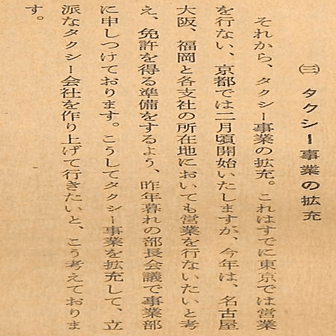 ㈢ タクシー事業の拡充
それから、タクシー事業の拡充。これはすでに東京では営業
を行ない、京都では二月頃開始いたしますが、今年は、名古屋
大阪、福岡と各支社の所在地においても営業を行ないたいと考
え、免許を得る準備をするよう、昨年暮れの部長会議で事業部
に申しつけております。こうしてタクシー事業を拡充して、立
派なタクシー会社を作り上げて行きたいと、こう考えておりま
す。